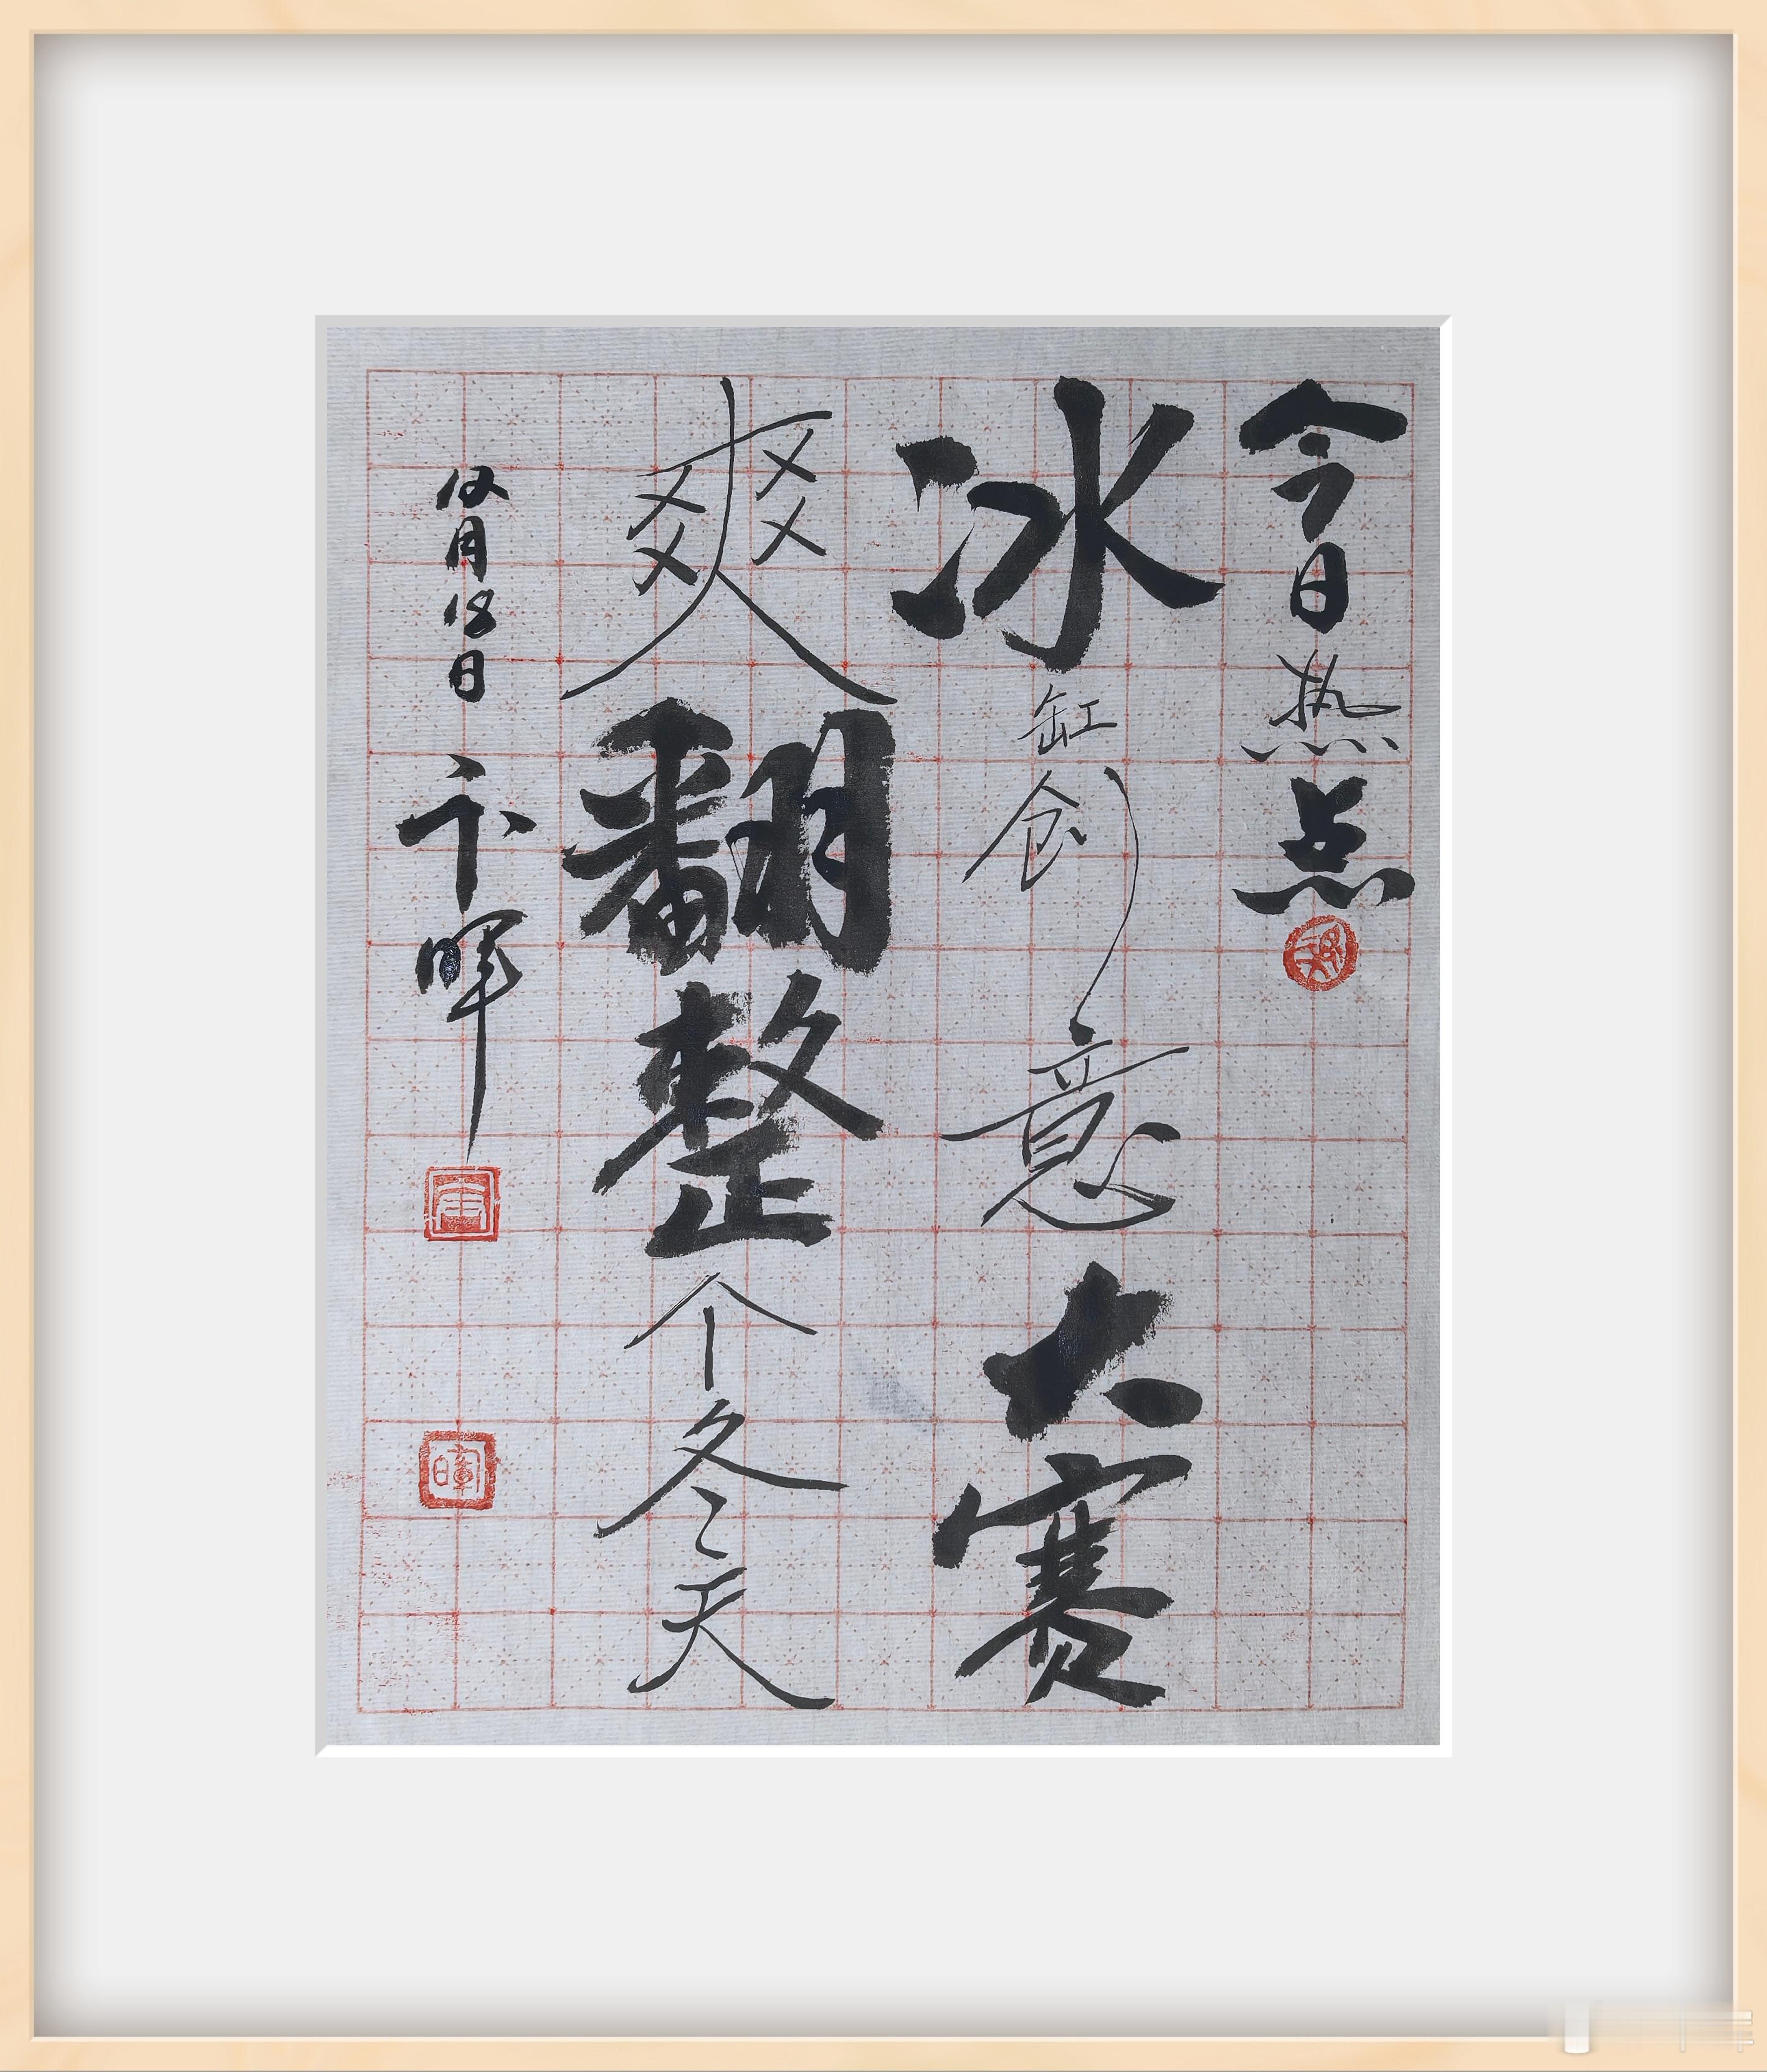 今日热点
冰缸创意大赛
爽翻整个冬天
12月18日 卞晖